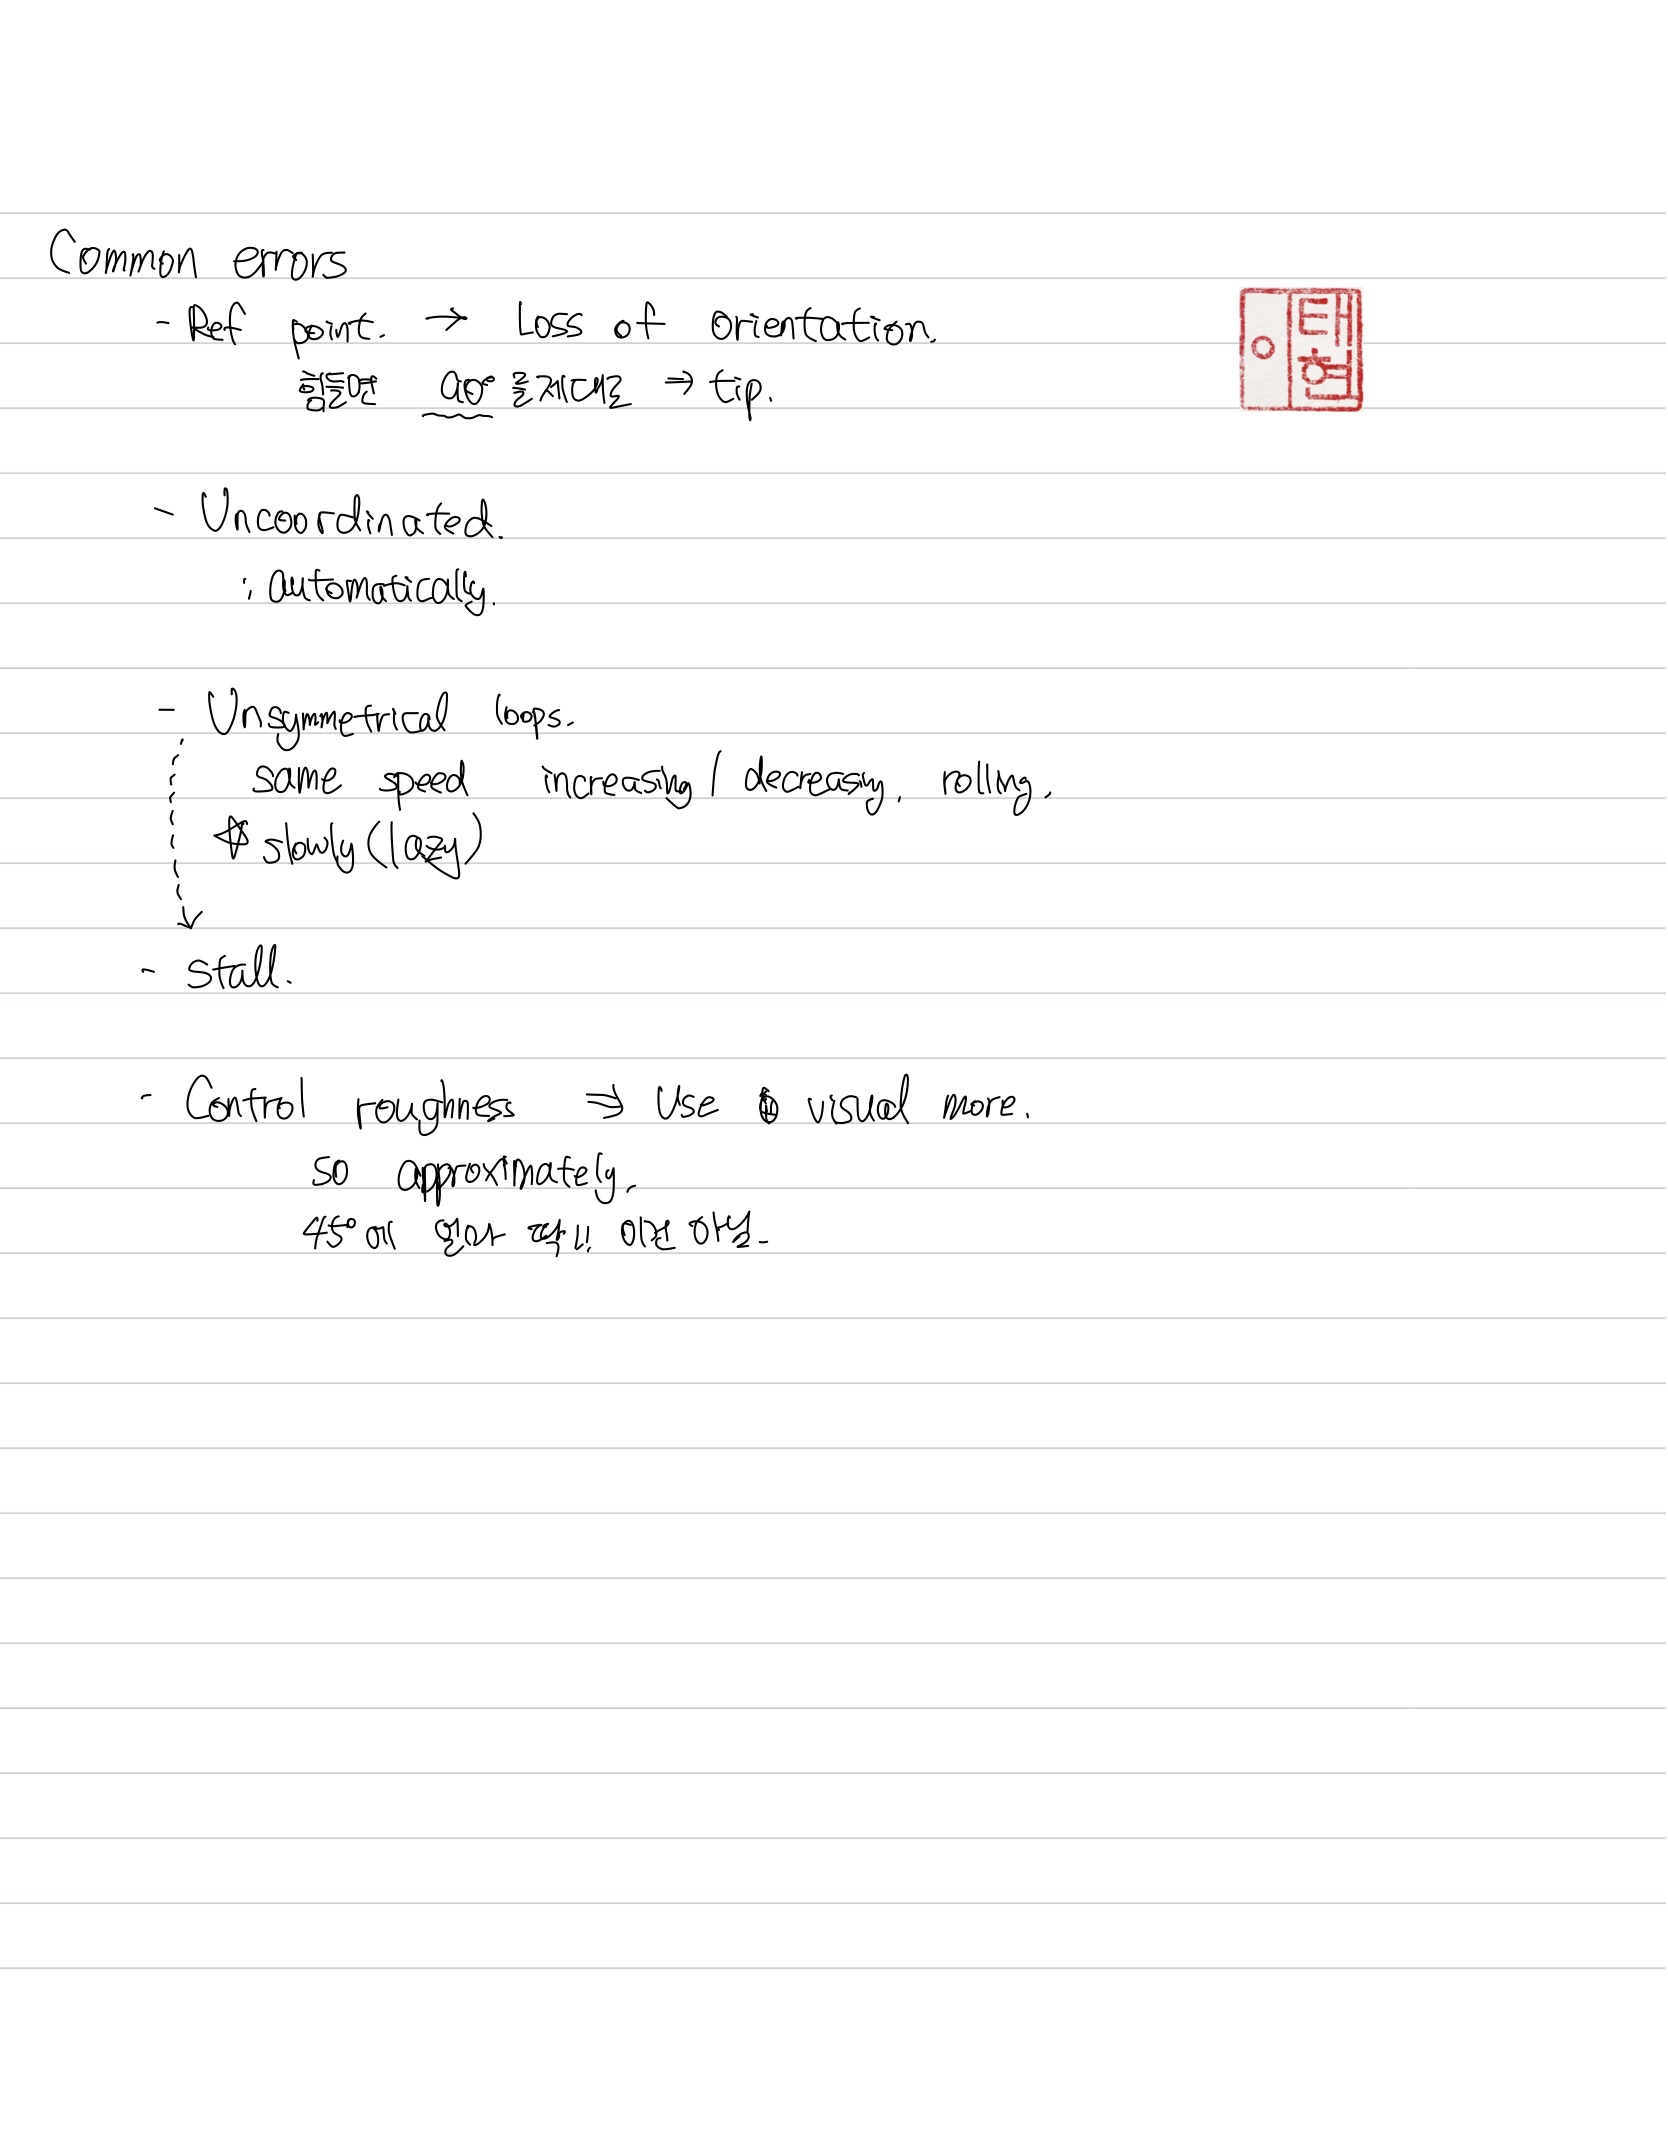 Common errors
- Ref point. → Loss of orientation.
힘들면 90° 를제대로 → tip.
- Uncoordinated.
; automatically.
- Unsymmetrical loops.
same speed increasing / decreasing, rolling.
☆ slowly (lazy)
- Stall.
- Control roughness ⇒ Use visual more.
so approximately.
45°에 얼마 딱!! 이건 아님.
이
태현